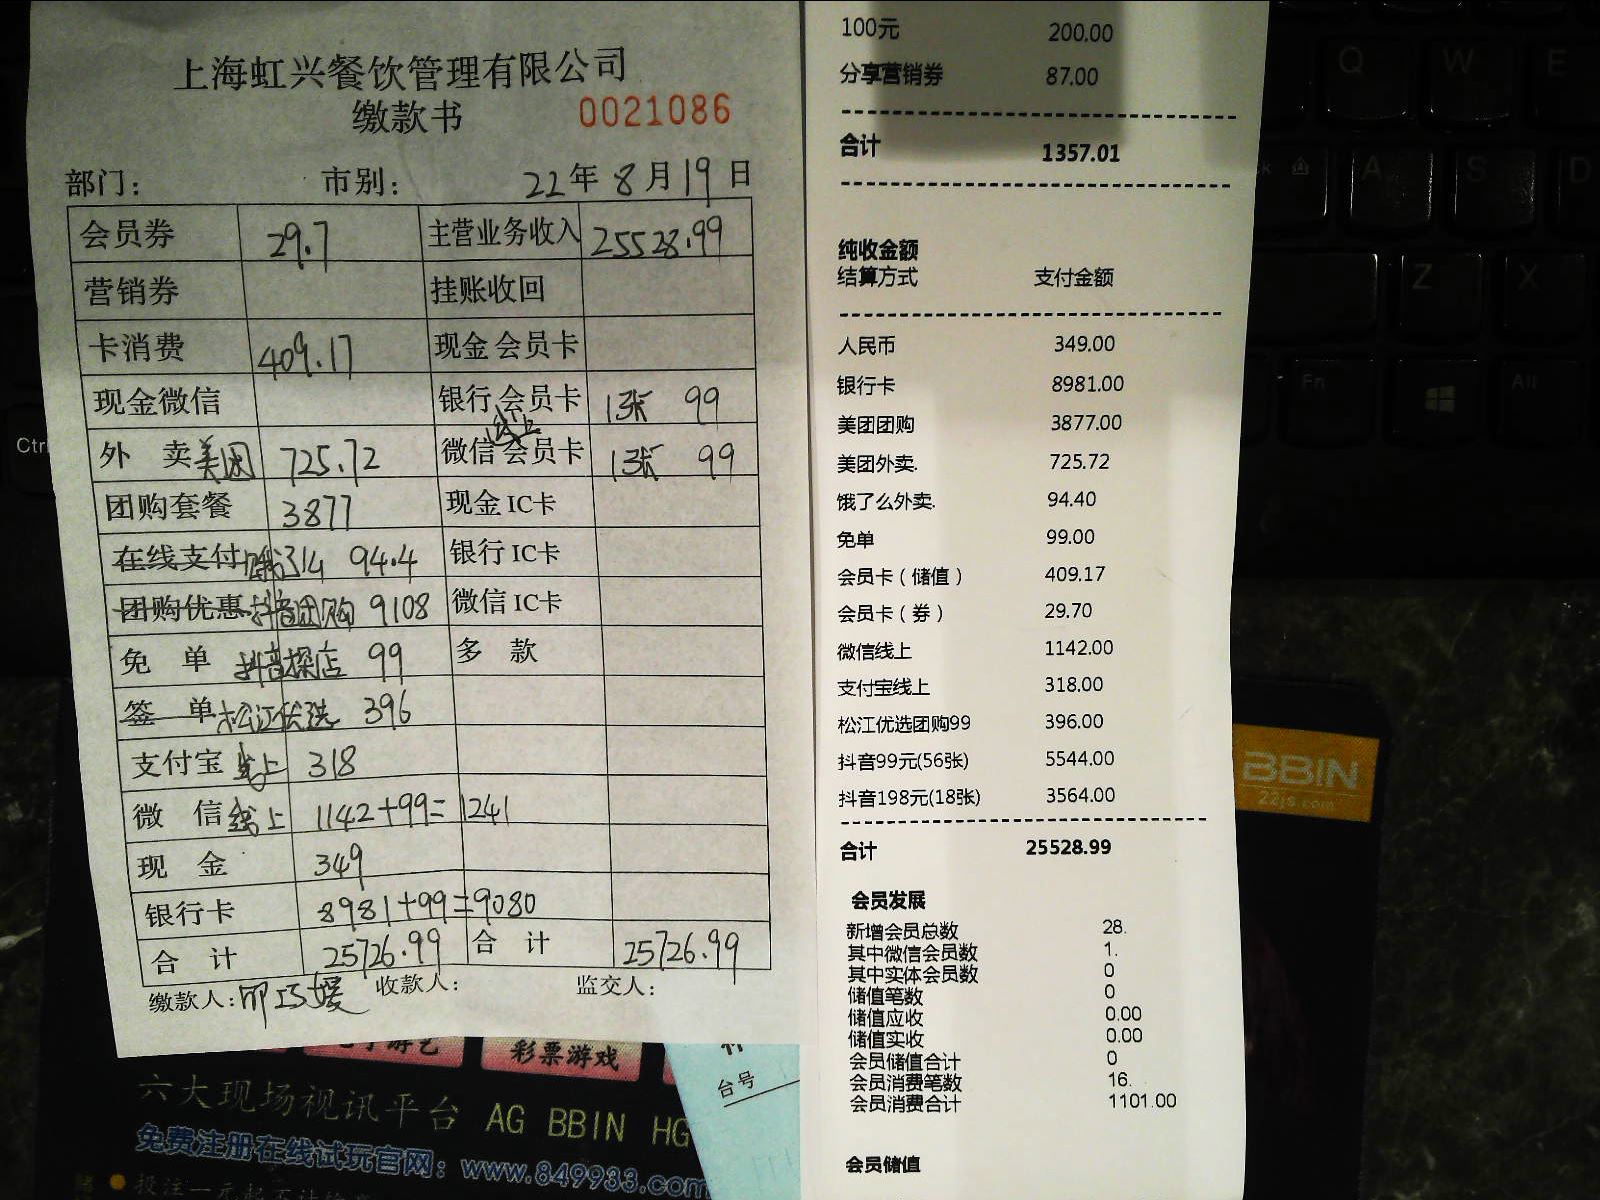 上海虹兴餐饮管理有限公司
缴款书 0021086
部门： 市别： 22年8月19日
会员券 29.7 主营业务收入 25528.99
营销券 挂账收回
卡消费 409.17 现金会员卡
现金微信 银行会员卡 1张 99
外卖美团 725.72 微信线上会员卡 1张 99
团购套餐 3877 现金IC卡
在线支付 94.4 银行IC卡
团购优惠抖音团购 9108 微信IC卡
免单抖音探店 99 多款
签单松江优选 396
支付宝线上 318
微信线上 1142+99=1241
现金 349
银行卡 8981+99=9080
合计 25726.99 合计 25726.99
缴款人： 收款人： 监交人：
100元 200.00
分享营销券 87.00
合计 1357.01
纯收金额
结算方式 支付金额
人民币 349.00
银行卡 8981.00
美团团购 3877.00
美团外卖. 725.72
饿了么外卖. 94.40
免单 99.00
会员卡（储值） 409.17
会员卡（券） 29.70
微信线上 1142.00
支付宝线上 318.00
松江优选团购99 396.00
抖音99元(56张) 5544.00
抖音198元(18张) 3564.00
合计 25528.99
会员发展
新增会员总数 28.
其中微信会员数 1.
其中实体会员数 0
储值笔数 0
储值应收 0.00
储值实收 0.00
会员储值合计 0
会员消费笔数 16.
会员消费合计 1101.00
会员储值
彩票游戏
台号
六大现场视讯平台 AG BBIN HG
免费注册在线试玩官网：www.849933.com
BBIN
22js.com
Q W E
A S D
Z X
Fn Alt
Ctrl